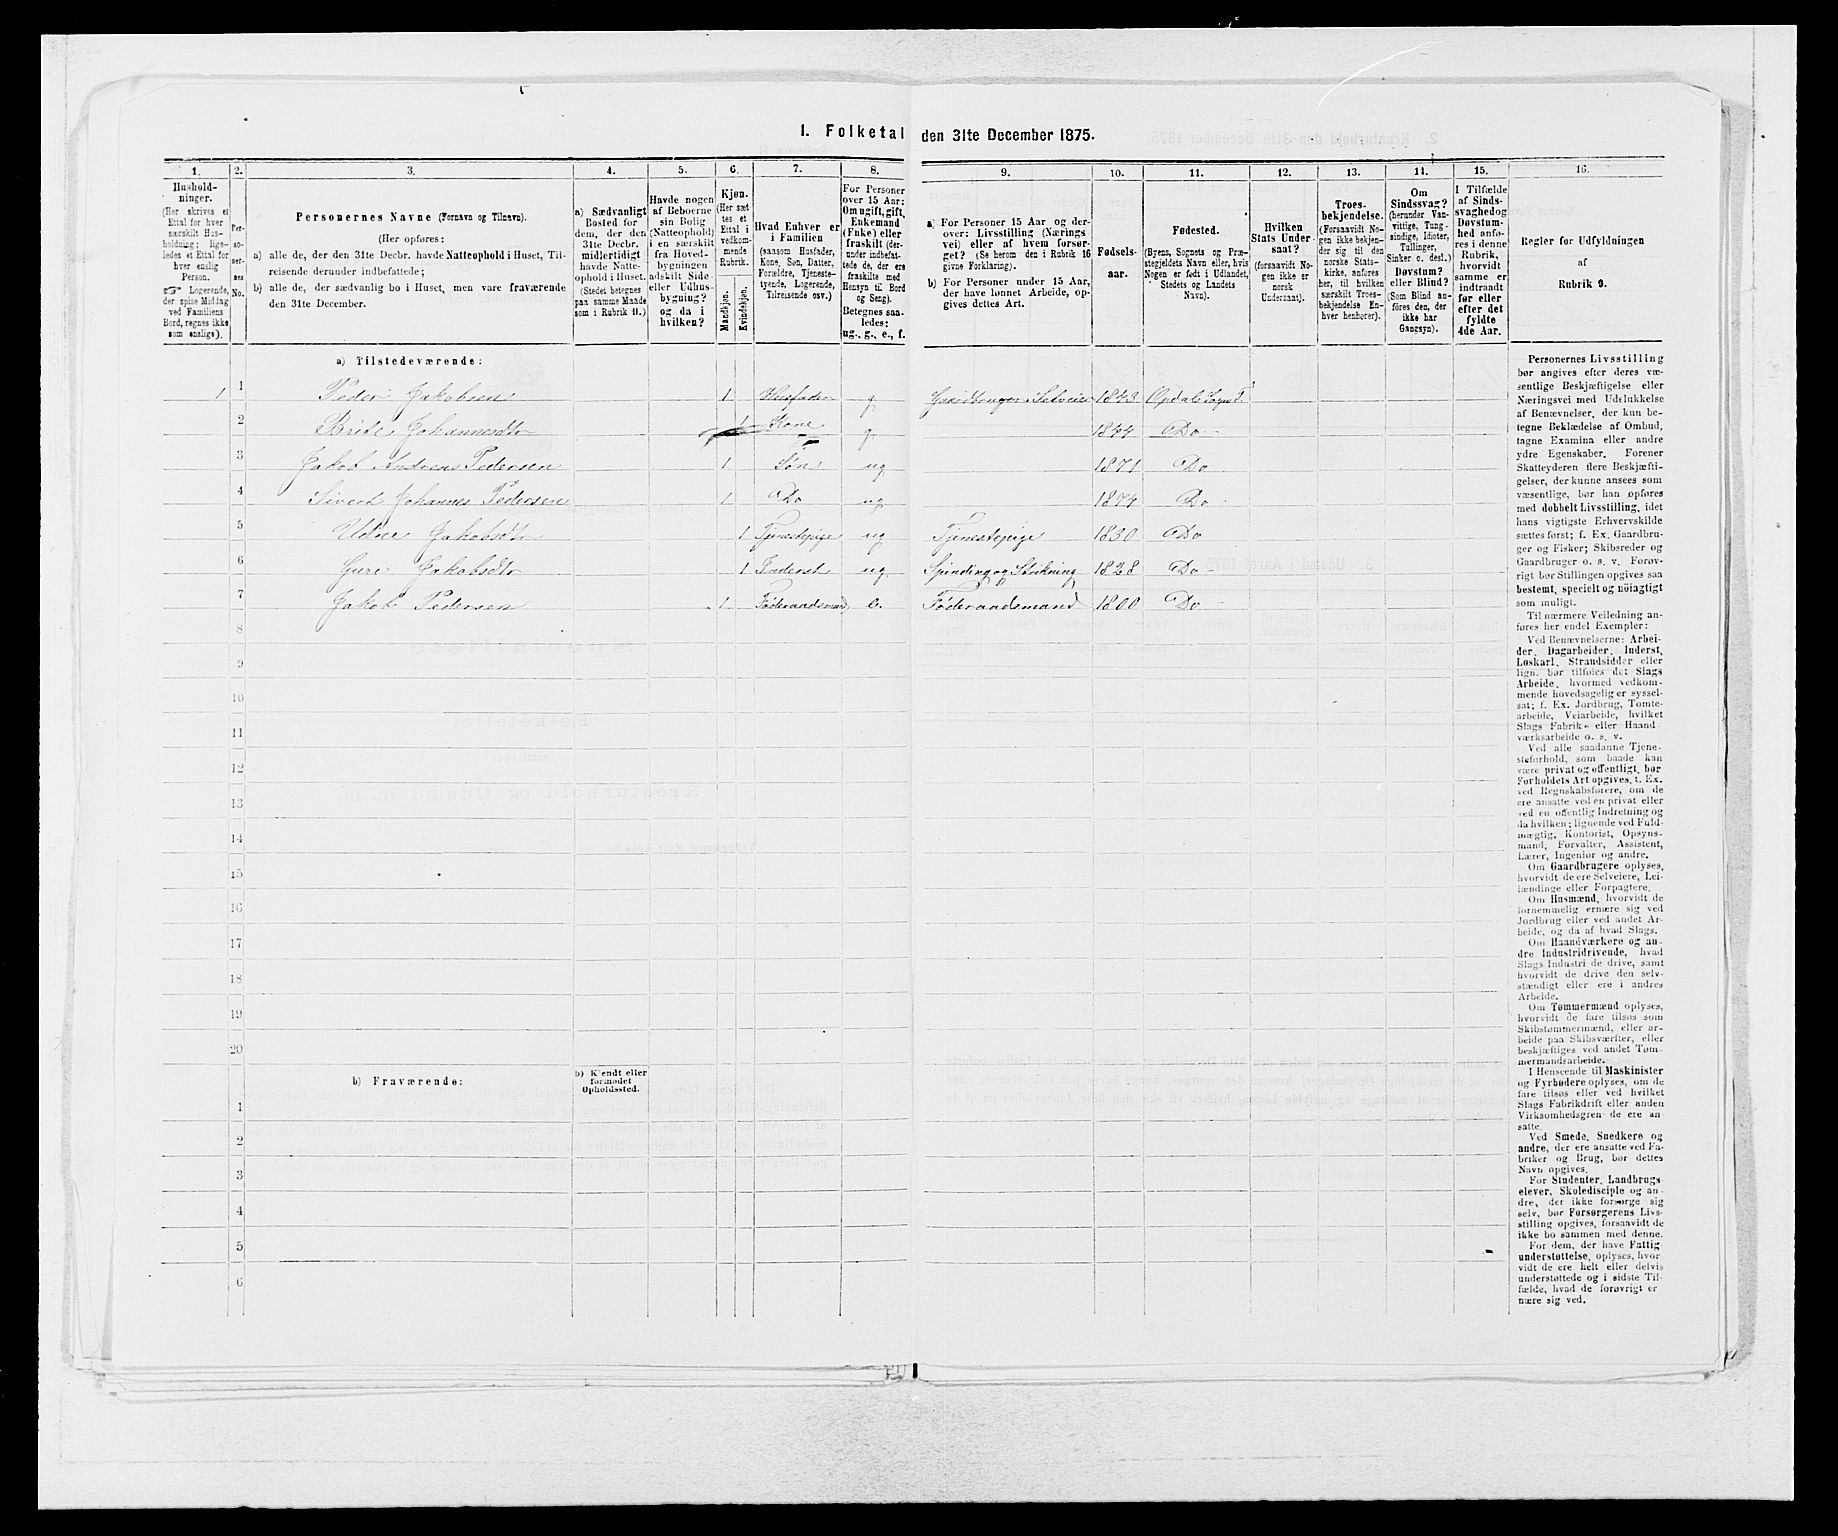 1. Folketal den 31te December 1875.
1. 2. 3. 4. 5. 6. 7. 8. 9. 10. 11. 12. 13. 14. 15. 16.
Hushold-
ninger.
(Her skrives et
Ettal for hver
særskilt Hus-
holdning; lige-
ledes et Ettal for
hver enslig
Person.
☞ Logerende,
der spise Middag
ved Familiens
Bord, regnes ikke
som enslige).
Per-
so-
ner-
nes
No.
Personernes Navne (Fornavn og Tilnavn).
(Her opføres:
a) alle de, der den 31te Decbr. havde Natteophold i Huset, Til-
reisende derunder indbefattede;
b) alle de, der sædvanlig bo i Huset, men vare fraværende
den 31te December.
a) Sædvanligt
Bosted for
dem, der den
31te Decbr.
midlertidigt
havde Natte-
ophold i Huset.
(Stedet betegnes
paa samme Maade
som i Rubrik 11.)
Havde nogen
af Beboerne
sin Bolig
(Natteophold)
i en særskilt
fra Hoved-
bygningen
adskilt Side-
eller Udhus-
bygning?
og da i
hvilken?
Kjøn.
(Her sæt-
tes et
Ettal i
vedkom-
mende
Rubrik.
Mandkjøn.
Kvindekjøn.
Hvad Enhver er
i Familien
(saasom Husfader,
Kone, Søn, Datter,
Forældre, Tjeneste-
tyende, Logerende,
Tilreisende osv.)
For Personer
over 15 Aar:
Om ugift, gift,
Enkemand
(Enke) eller
fraskilt (der-
under indbefat-
tede de, der ere
fraskilte med
Hensyn til Bord
og Seng).
Betegnes saa-
ledes:
ug., g., e., f.
a) For Personer 15 Aar og der-
over: Livsstilling (Nærings-
vei) eller af hvem forsør-
get? (Se herom den i Rubrik 16
givne Forklaring).
b) For Personer under 15 Aar,
der have lønnet Arbeide, op-
gives dettes Art.
Fødsels-
aar.
Fødested.
(Byens, Sognets og Præ-
stegjeldets Navn eller, hvis
Nogen er født i Udlandet,
Stedets og Landets
Navn).
Hvilken
Stats Under-
saat?
(forsaavidt No-
gen ikke er
norsk
Undersaat).
Troes-
bekjendelse.
(Forsaavidt No-
gen ikke bekjen-
der sig til den
norske Stats-
kirke, anføres
her, til hvilken
særskilt Troes-
bekjendelse En-
hver henhører).
Om
Sindssvag?
(herunder Van-
vittige, Tung-
sindige, Idioter,
Tullinger,
Sinker o. desl.)
Døvstum?
eller Blind?
(Som Blind an-
føres den, der
ikke har
Gangsyn).
I Tilfælde
af Sinds-
svaghed og
Døvstum-
hed anfø-
res i denne
Rubrik,
hvorvidt
samme er
indtraadt
før eller
efter det
fyldte
4de Aar.
Regler for Udfyldningen
af
Rubrik 9.
a) Tilstedeværende:
1 1 Peder Jakobsen 1 Husfader g Gaardbruger Selveier 1843 Opdals Sogn
2 Brite Johannesdtr 1 Kone g 1844 Do
3 Jakob Andreas Pedersen 1 Søn ug 1871 Do
4 Sivert Johannes Pedersen 1 Do ug 1874 Do
5 Jakobsdtr 1 Tjenestepige ug Tjenestepige 1830 Do
6 Guri Jakobsdtr 1 Inderst ug Spinding og Strikning 1828 Do
7 Jakob Pedersen 1 Føderaadsmand e. Føderaadsmand 1800 Do
8
9
10
11
12
13
14
15
16
17
18
19
20
b) Fraværende:
b) Kjendt eller
formodet
Opholdssted.
1
2
3
4
5
6
Personernes Livsstilling
bør angives efter deres væ-
sentlige Beskjæftigelse eller
Næringsvei med Udelukkelse
af Benævnelser, der kun be-
tegne Beklædelse af Ombud,
tagne Examina eller andre
ydre Egenskaber. Forener
Skatteyderen flere Beskjæfti-
gelser, der kunne ansees som
væsentlige, bør han opføres
med dobbelt Livsstilling, idet
hans vigtigste Erhvervskilde
sættes først; f. Ex. Gaardbru-
ger og Fisker; Skibsreder og
Gaardbruger o. s. v. Forøv-
rigt bør Stillingen opgives saa
bestemt, specielt og nöiagtigt
som muligt.
Til nærmere Veiledning an-
føres her endel Exempler:
Ved Benævnelserne: Arbei-
der, Dagarbeider, Inderst,
Løskarl, Strandsidder eller
lign. bør tilføies det Slags
Arbeide, hvormed vedkom-
mende hovedsagelig er syssel-
sat; f. Ex. Jordbrug, Tomte-
arbeide, Veiarbeide, hvilket
Slags Fabrik- eller Haand-
værksarbeide o. s. v.
Ved alle saadanne Tjene-
steforhold, som baade kan
være privat og offentligt, bør
Forholdets Art opgives, f. Ex.
ved Regnskabsførere, om de
ere ansatte ved en privat eller
ved en offentlig Indretning og
da hvilken; lignende ved Fuld-
mægtig, Kontorist, Opsyns-
mand, Forvalter, Assistent,
Lærer, Ingeniør og andre.
Om Gaardbrugere oplyses,
hvorvidt de ere Selveiere, Lei-
lændinge eller Forpagtere.
Om Husmænd, hvorvidt de
fornemmelig ernære sig ved
Jordbrug eller ved andet Ar-
beide, og da af hvad Slags.
Om Haandværkere og an-
dre Industridrivende, hvad
Slags Industri de drive, samt
hvorvidt de drive den selv-
stændigt eller ere i andres
Arbeide.
Om Tømmermænd oplyses,
hvorvidt de fare tilsøs som
Skibstømmermænd, eller ar-
beide paa Skibsværfter, eller
beskjæftiges ved andet Tøm-
mermandsarbeide.
I Henseende til Maskinister
og Fyrbødere oplyses, om de
fare tilsøs eller ved hvilket
Slags Fabrikdrift eller anden
Virksomhedsgren de ere an-
satte.
Ved Smede, Snedkere og
andre, der ere ansatte ved Fa-
briker og Brug, bør dettes
Navn opgives.
For Studenter, Landbrugs-
elever, Skoledisciple og an-
dre, der ikke forsørge sig
selv, bør Forsørgerens Livs-
stilling opgives, forsaavidt de
ikke bo sammen med denne.
For dem, der have Fattig-
understøttelse, oplyses, hvor-
vidt de ere helt eller delvis
understøttede og i sidste Til-
fælde, hvad de forøvrigt er-
nære sig ved.